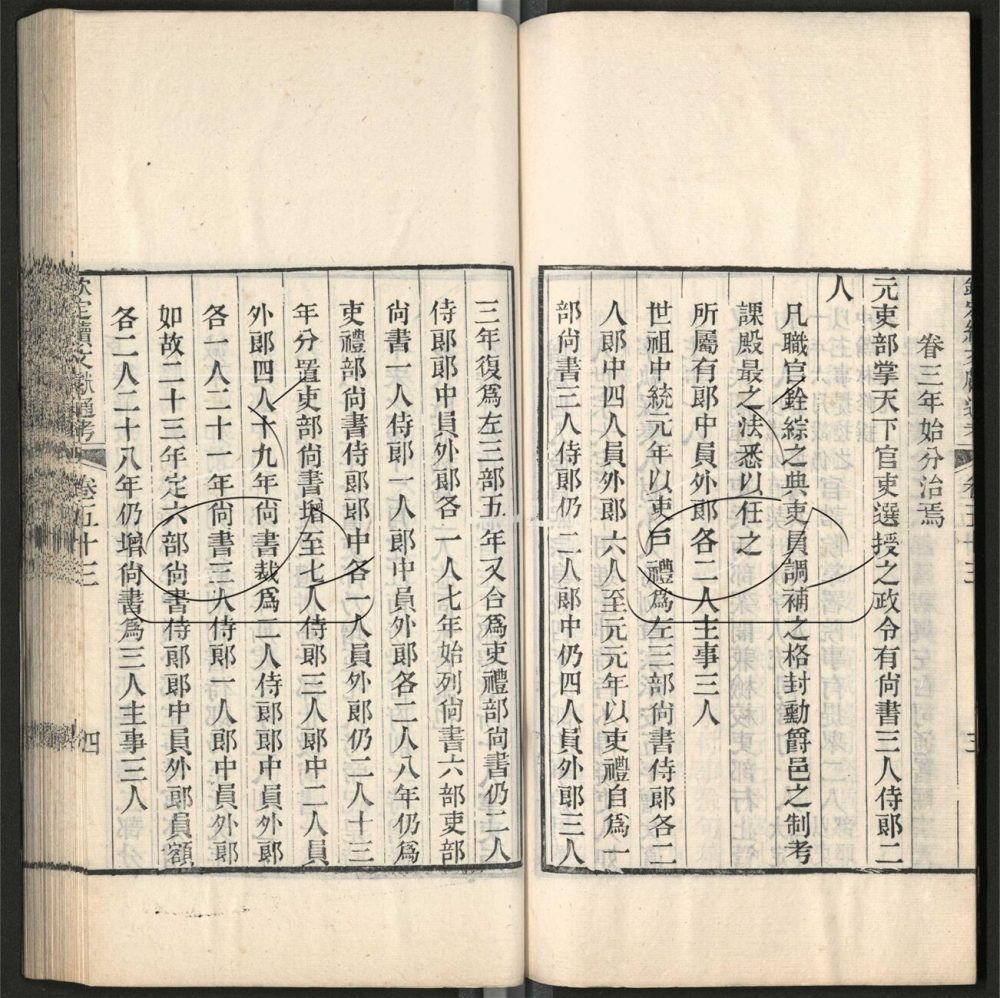 眷三年始分治焉
元吏部掌天下官吏選授之政令有尙書三人侍郞二
人
凡職官銓綜之典吏員調補之格封勳爵邑之制考
課殿最之法悉以任之
所屬有郞中員外郞各二人主事三人
世祖中統元年以吏戶禮爲左三部尙書侍郞各二
人郞中四人員外郞六人至元元年以吏禮自爲一
部尙書三人侍郞仍二人郞中仍四人員外郞三人
三年復爲左三部五年又合爲吏禮部尙書仍二人
侍郞郞中員外郞各一人七年始列尙書六部吏部
尙書一人侍郞一人郞中員外郞各二人八年仍爲
吏禮部尙書侍郞郞中各一人員外郞仍二人十三
年分置吏部尙書增至七人侍郞三人郞中二人員
外郞四人十九年尙書裁爲二人侍郞郞中員外郞
各一人二十一年尙書三人侍郞一人郞中員外郞
如故二十三年定六部尙書侍郞郞中員外郞員額
各二人二十八年仍增尙書爲三人主事三人
欽定續文獻通考 卷五十三 四